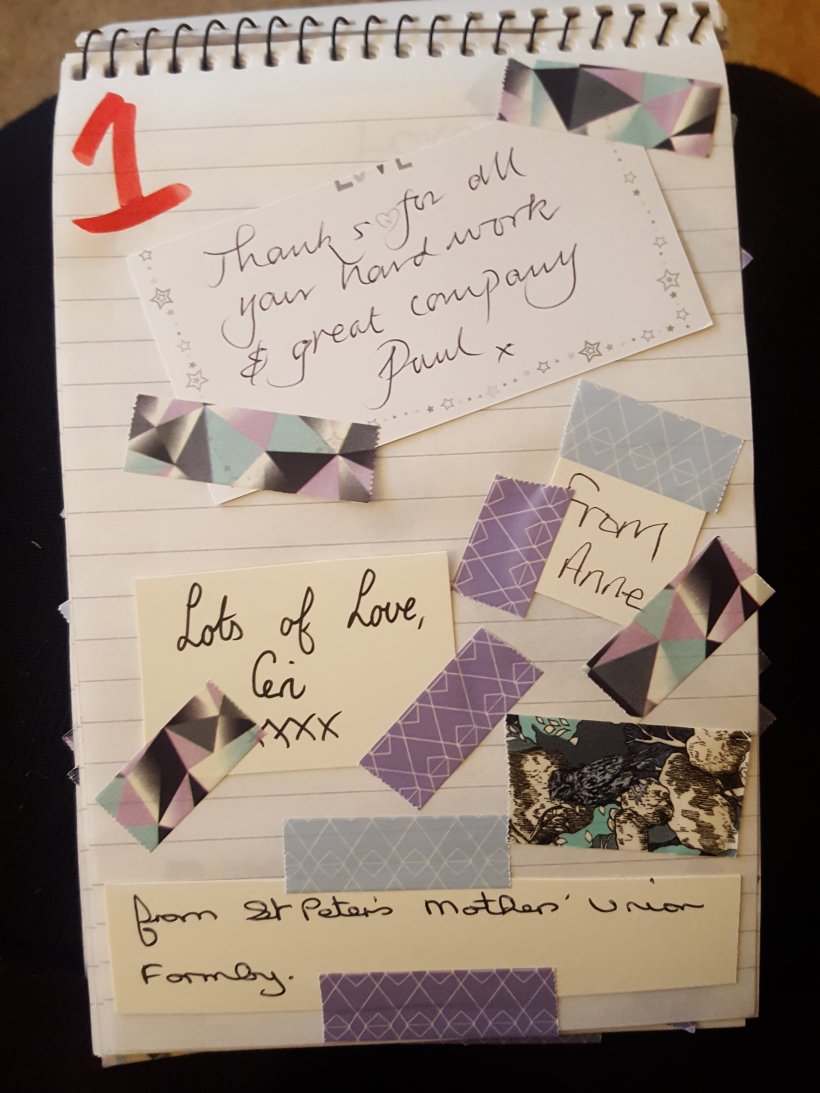 1
LOVE
Thanks for all
your hard work
& great company
Paul x
From
Anne
Lots of Love,
Ceri
XXXX
from St Peter's Mothers' Union
Formby.